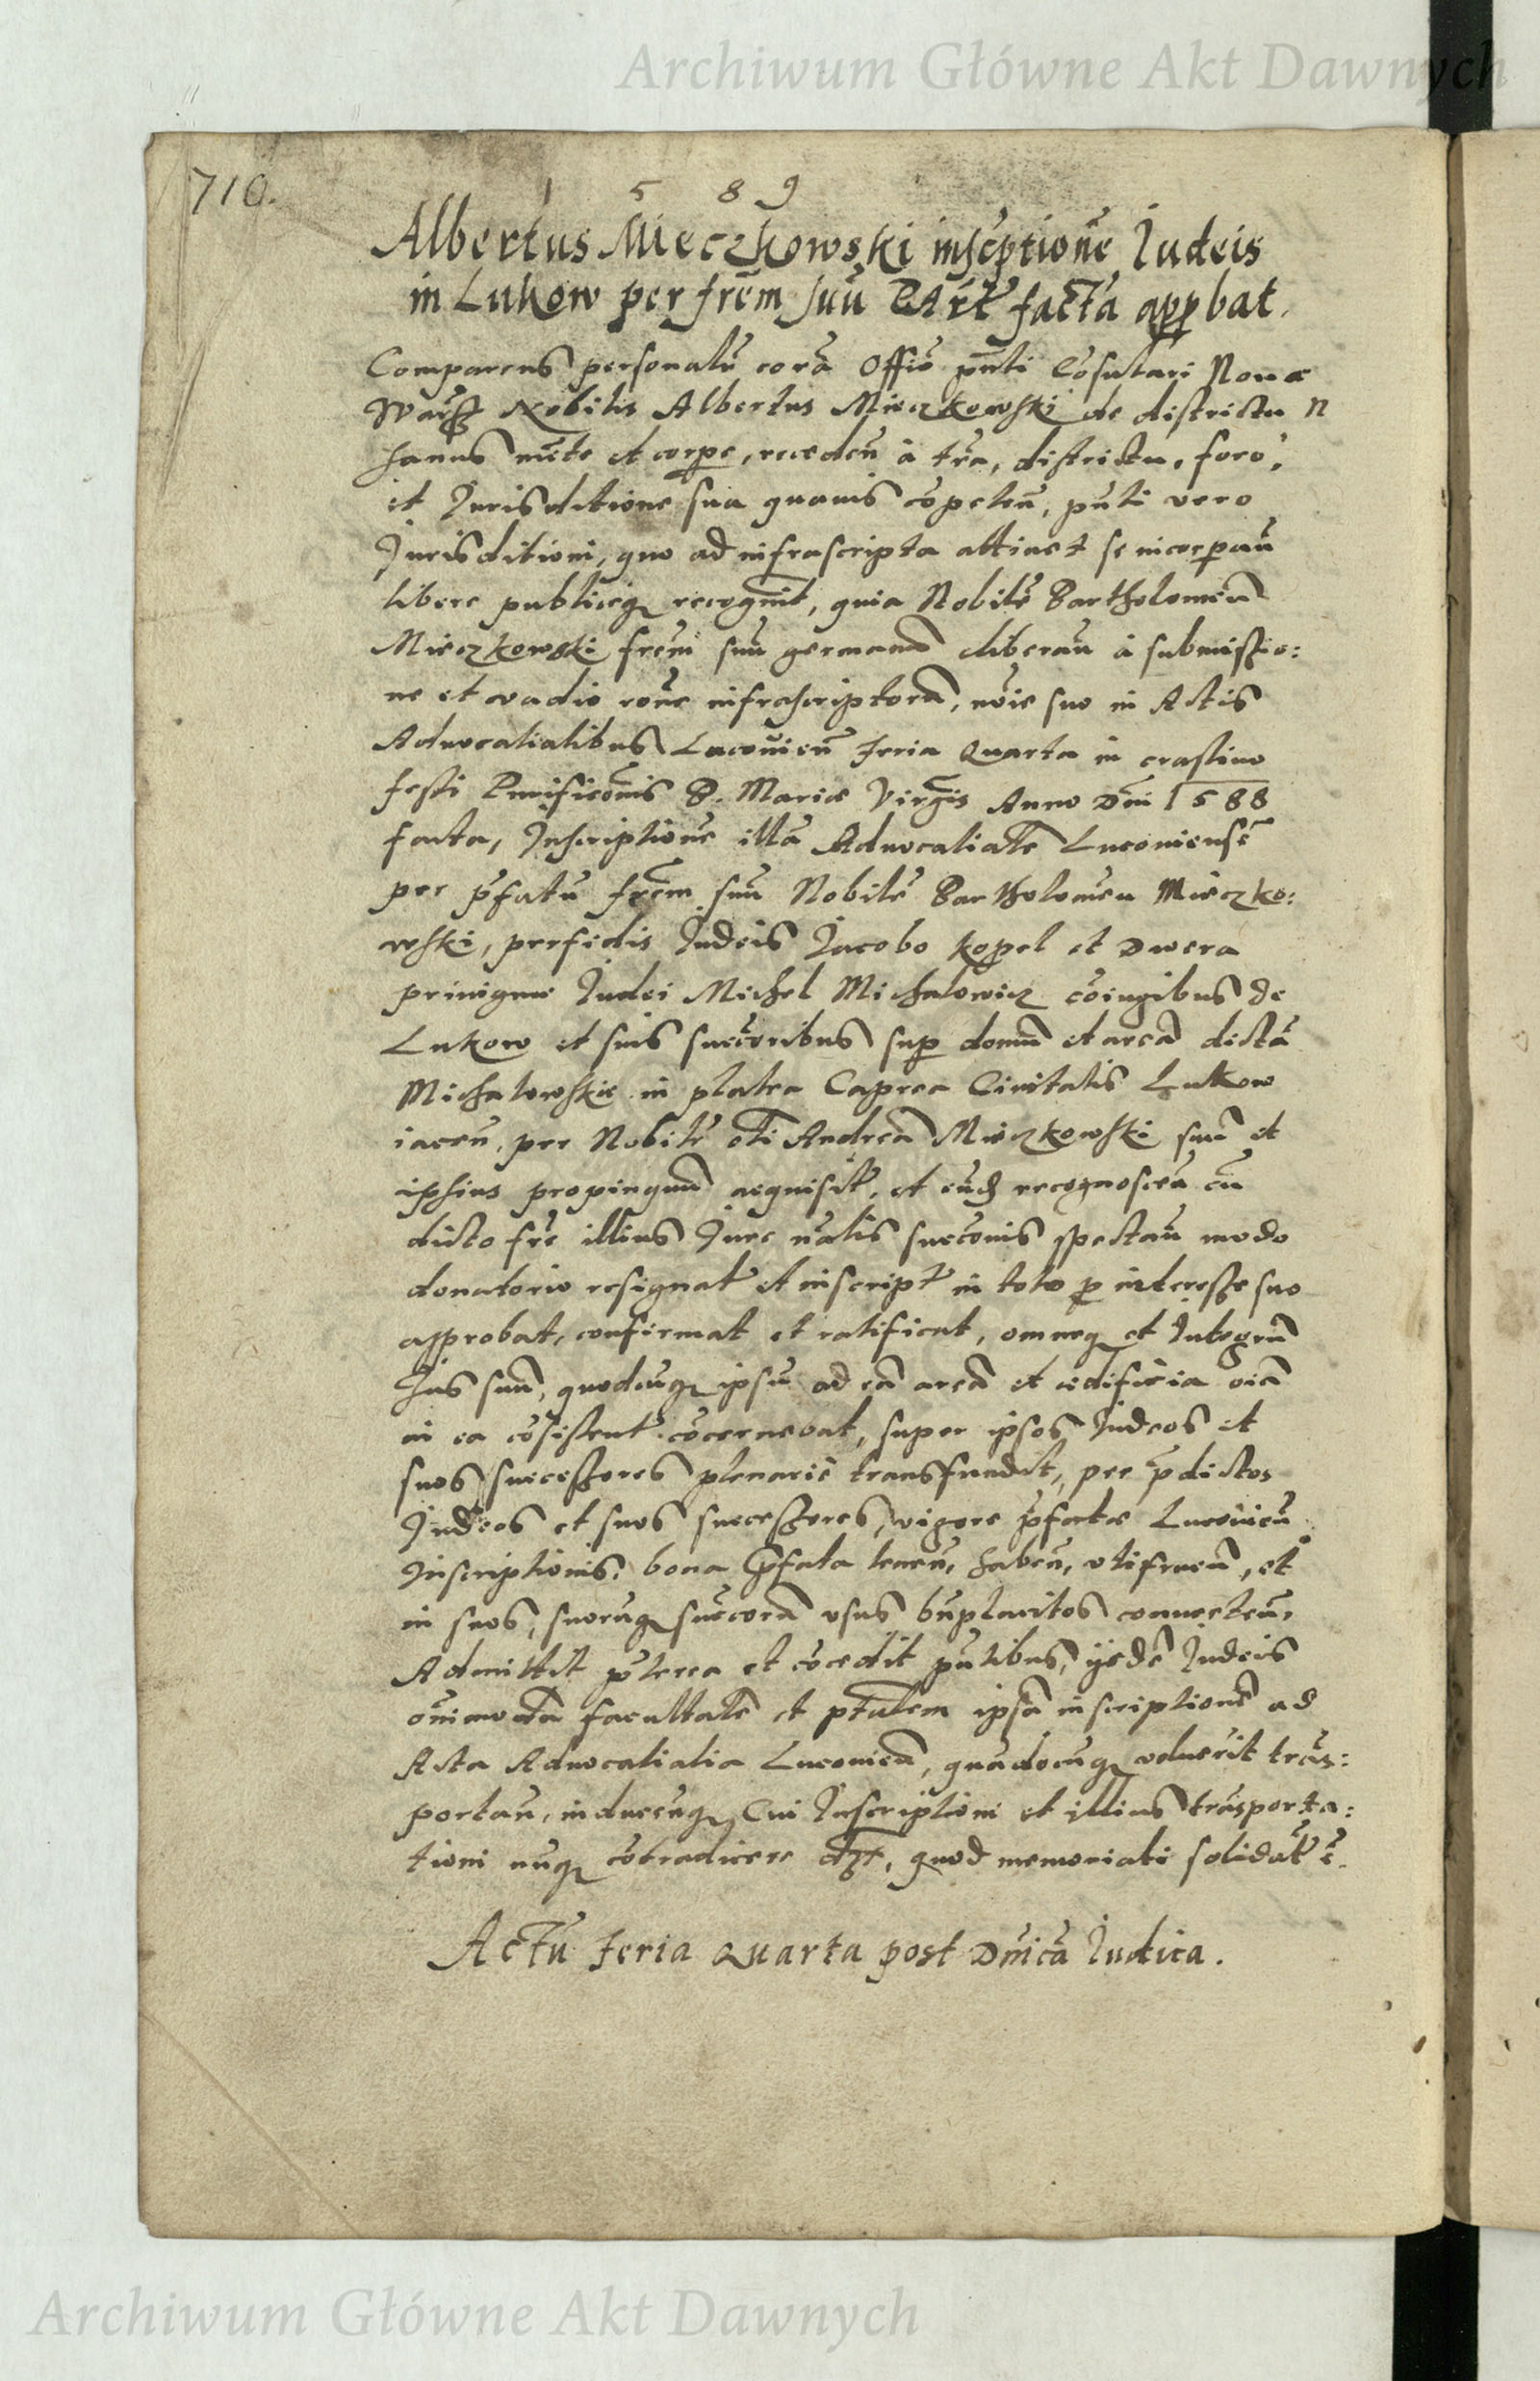 Archiwum Główne Akt Dawnych
710.
1 5 8 9
Albertus Mieczkowski inscptionē Iudeis
in Lukow per frēm suū Bart facta appbat.
Comparens personalr̃ corā Offiō pn̄ti Cōsulari Nouæ
Warsz Nobilis Albertus Mieczkowski de districtu N
sanus mēte et corpe, receden̄ à tr̄a, districtu, foro,
et Iurisditione sua quauis cōpeten̄, pn̄ti vero
Iurisditioni, quo ad infrascripta attinet se incorporan̄
libere publiceq recognuit, quia Nobilē Bartholomeū
Mieczkowski frēm suū germanū liberan̄ à submissio:
ne et vadio rōne infrascriptorū, nōie suo in Actis
Aduocatialibus Lucouien̄ feria Quarta in crastino
festi Purificōnis B. Mariæ Virgīs Anno Dm̄i 1588
facta, Inscriptionē illā Aduocatialē Lucouiensē
per p̄fatū frēm suū Nobilē Bartholomeū Mieczko:
wski, perfidis Iudeis Iacobo Kopel et Dwera
priuignæ Iudei Michel Michalowicz cōiugibus de
Lukow et suis succōribus sup domū et areā dictā
Michalowskie in platea Caprea Ciuitatis Lukow
iacen̄, per Nobilē oli Andreā Mieczkowski suū et
ipsius propinquū acquisit, et eūd recognoscen̄ cū
dicto frē illius Iure nālis succōnis spectan̄ modo
donatorio resignat et inscript in toto p interesse suo
approbat, confirmat et ratificat, omneq et Integrū
Ius suū, quodcūq ipsū ad eā areā et ædificia oīa
in ea cōsistent cōcernebat, super ipsos Iudeos et
suos successores plenariè transfundit, per p̄dictos
Iudeos et suos successores, vigore p̄fatæ Lucouien̄
Inscriptionis, bona p̄fata tenen̄, haben̄, utifruen̄, et
in suos, suorūq succorū usus bn̄placitos conuerten̄,
Admittit p̄terea et cōcedit pn̄tibus, ijsdē Iudeis
oīmodā facultatē et ptātem ipsā inscriptionē ad
Acta Aduocatialia Lucouien̄, quādocūq voluerit trās:
portan̄, inducenq Cui Inscriptioni et illius trāsporta:
tioni nūq cōtradicere dbt, quod memoriali solidat ē.
Actū feria Quarta post Dnicā Iudica.
Archiwum Główne Akt Dawnych